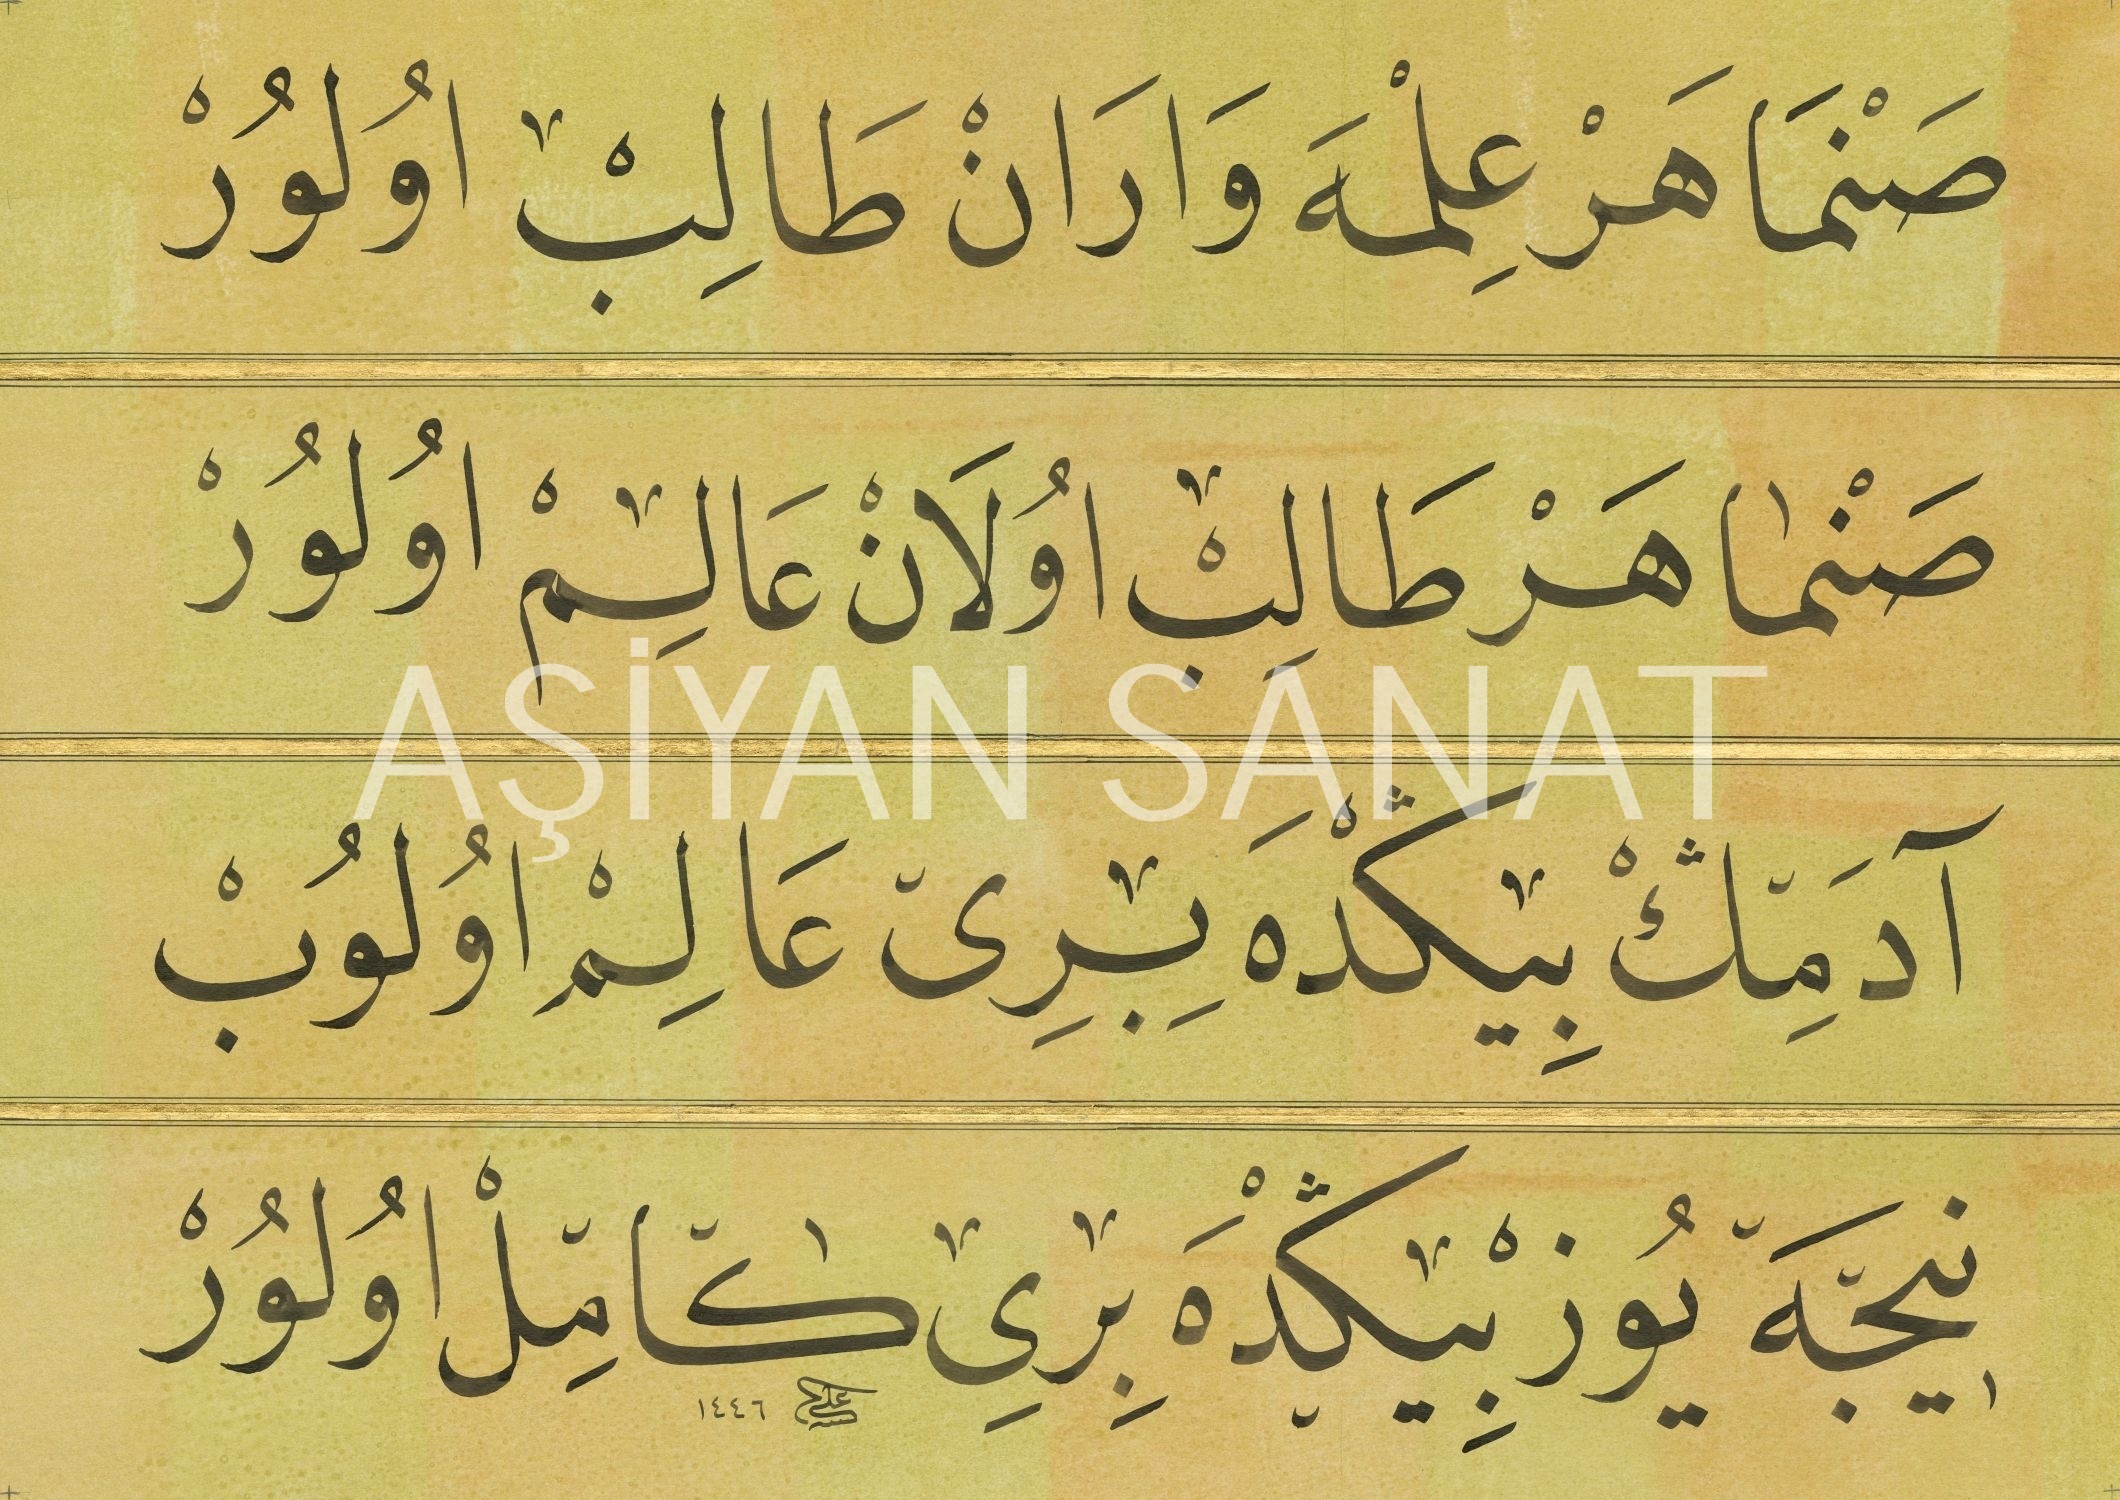 صَنْمَا هَرْ عِلْمَه وَارَانْ طَالِبْ اُولُورْ
صَنْمَا هَرْ طَالِبْ اُولَانْ عَالِمْ اُولُورْ
AŞİYAN SANAT
آدَمِڭْ بِيڭْدَه بِرِى عَالِمْ اُولُوبْ
نيجَه يُوزْ بِيڭْدَه بِرِى كَامِلْ اُولُورْ
١٤٤٦